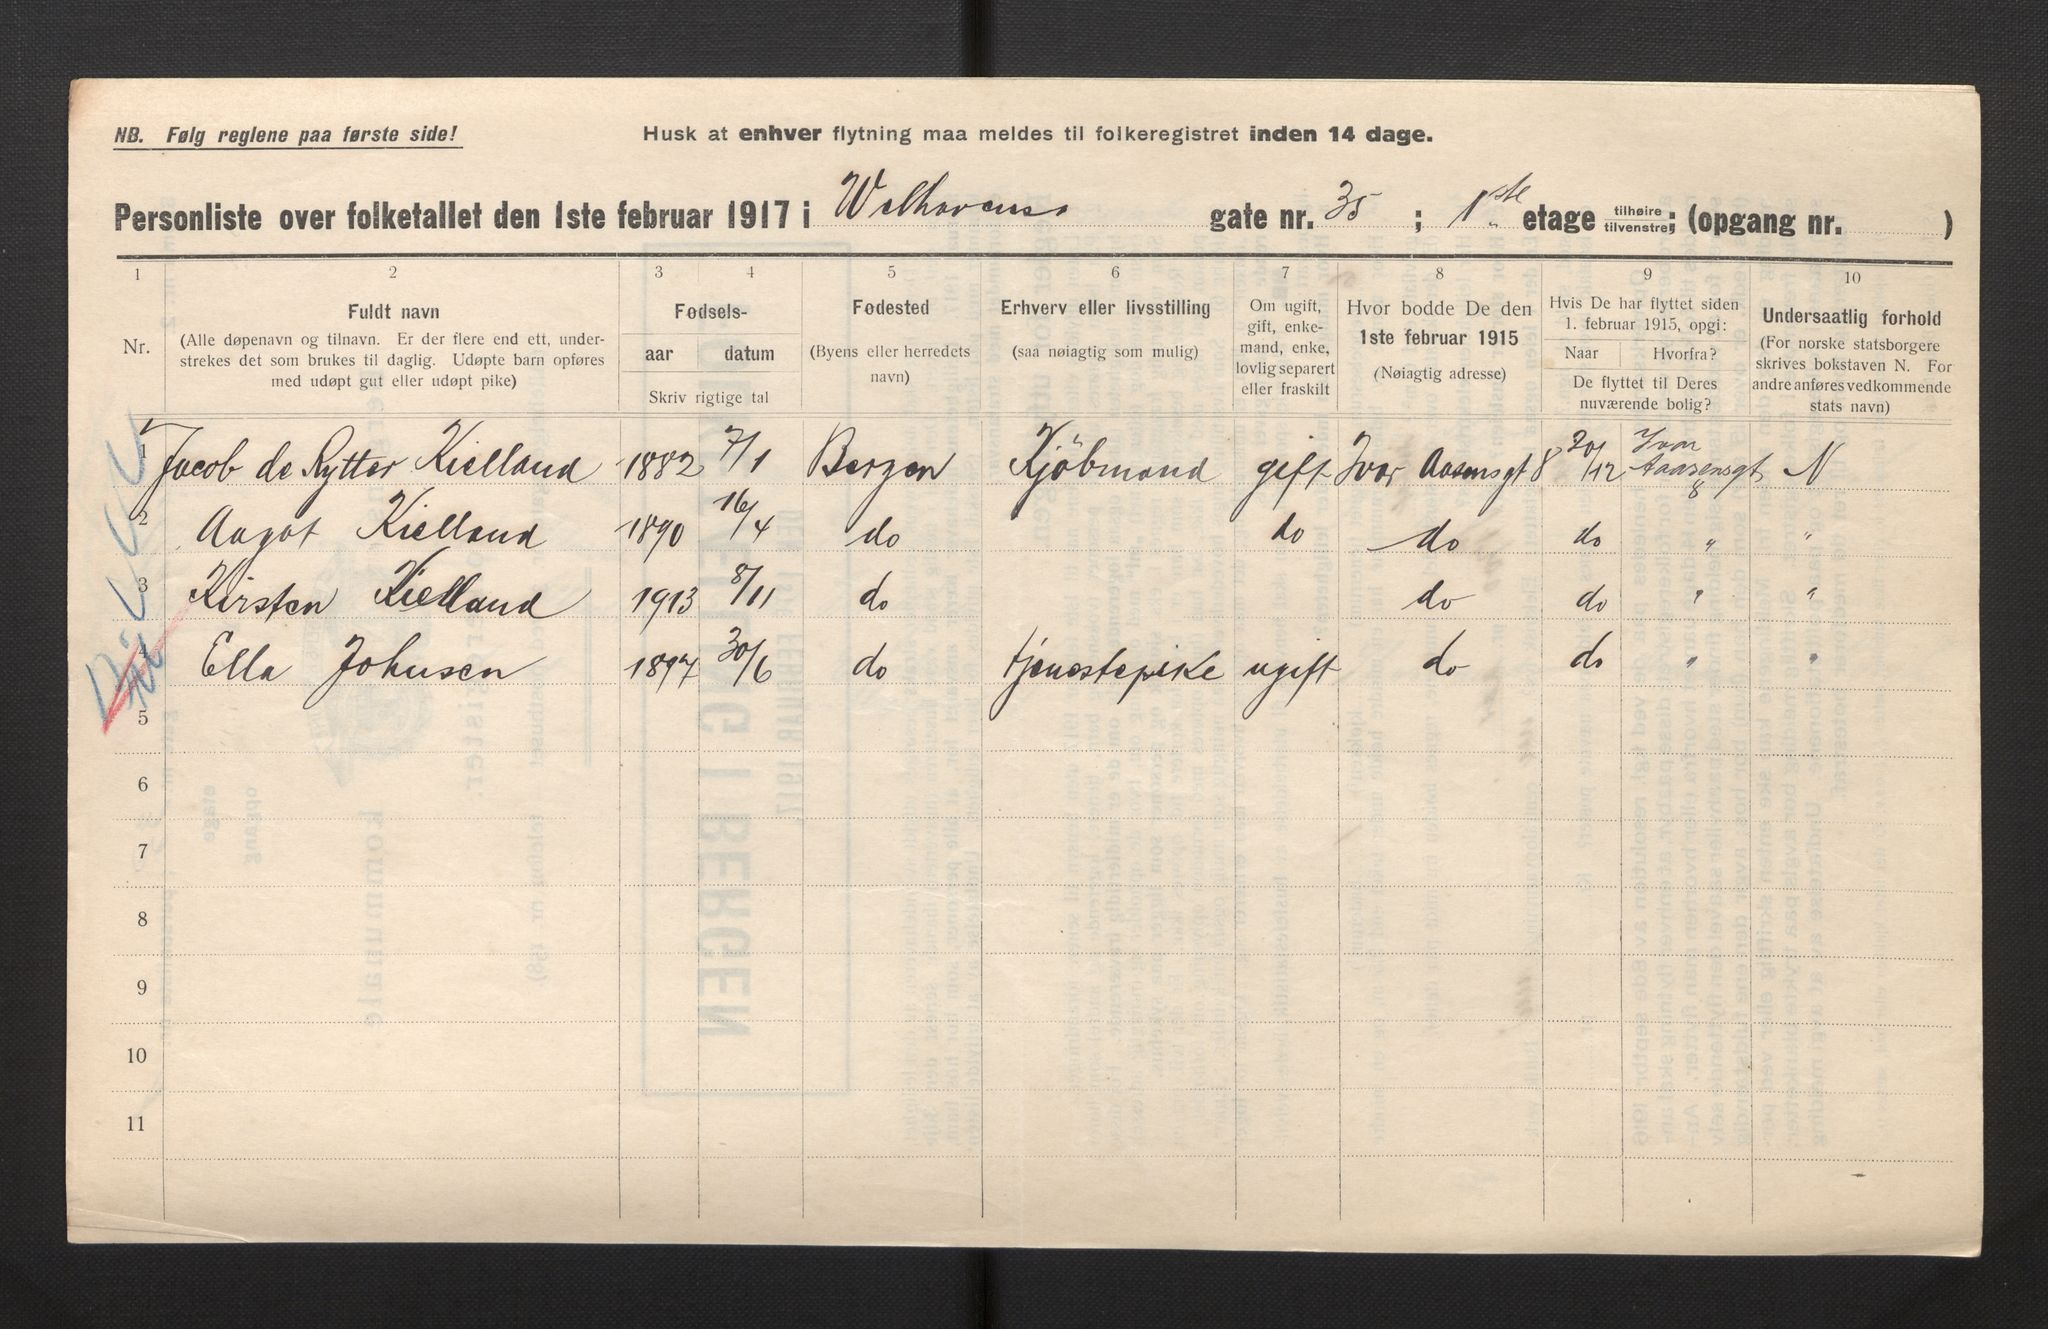 NB. Følg reglene paa første side!
Husk at enhver flytning maa meldes til folkeregistret inden 14 dage.
Personliste over folketallet den 1ste februar 1917 i Welhavens gate nr. 35 ; 1ste etage tilhøire tilvenstre; (opgang nr. )
1 2 3 4 5 6 7 8 9 10
Nr.
Fuldt navn
(Alle døpenavn og tilnavn. Er der flere end ett, under-
strekes det som brukes til daglig. Udøpte barn opføres
med udøpt gut eller udøpt pike)
Fødsels-
aar datum
Skriv rigtige tal
Fødested
(Byens eller herredets
navn)
Erhverv eller livsstilling
(saa nøiagtig som mulig)
Om ugift,
gift, enke-
mand, enke,
lovlig separert
eller fraskilt
Hvor bodde De den
1ste februar 1915
(Nøiagtig adresse)
Hvis De har flyttet siden
1. februar 1915, opgi:
Naar Hvorfra?
De flyttet til Deres
nuværende bolig?
Undersaatlig forhold
(For norske statsborgere
skrives bokstaven N. For
andre anføres vedkommende
stats navn)
1 Jacob de Rytter Kielland 1882 7/1 Bergen Kjöbmand gift Ivar Aasensgt 8 20/12 Ivar Aaasensgt 8 N
2 Aagot Kielland 1890 16/4 do do do do " "
3 Kirsten Kielland 1913 8/11 do do do " "
4 Ella Johnsen 1897 30/6 do tjenestepike ugift do do " "
5
6
7
8
9
10
11